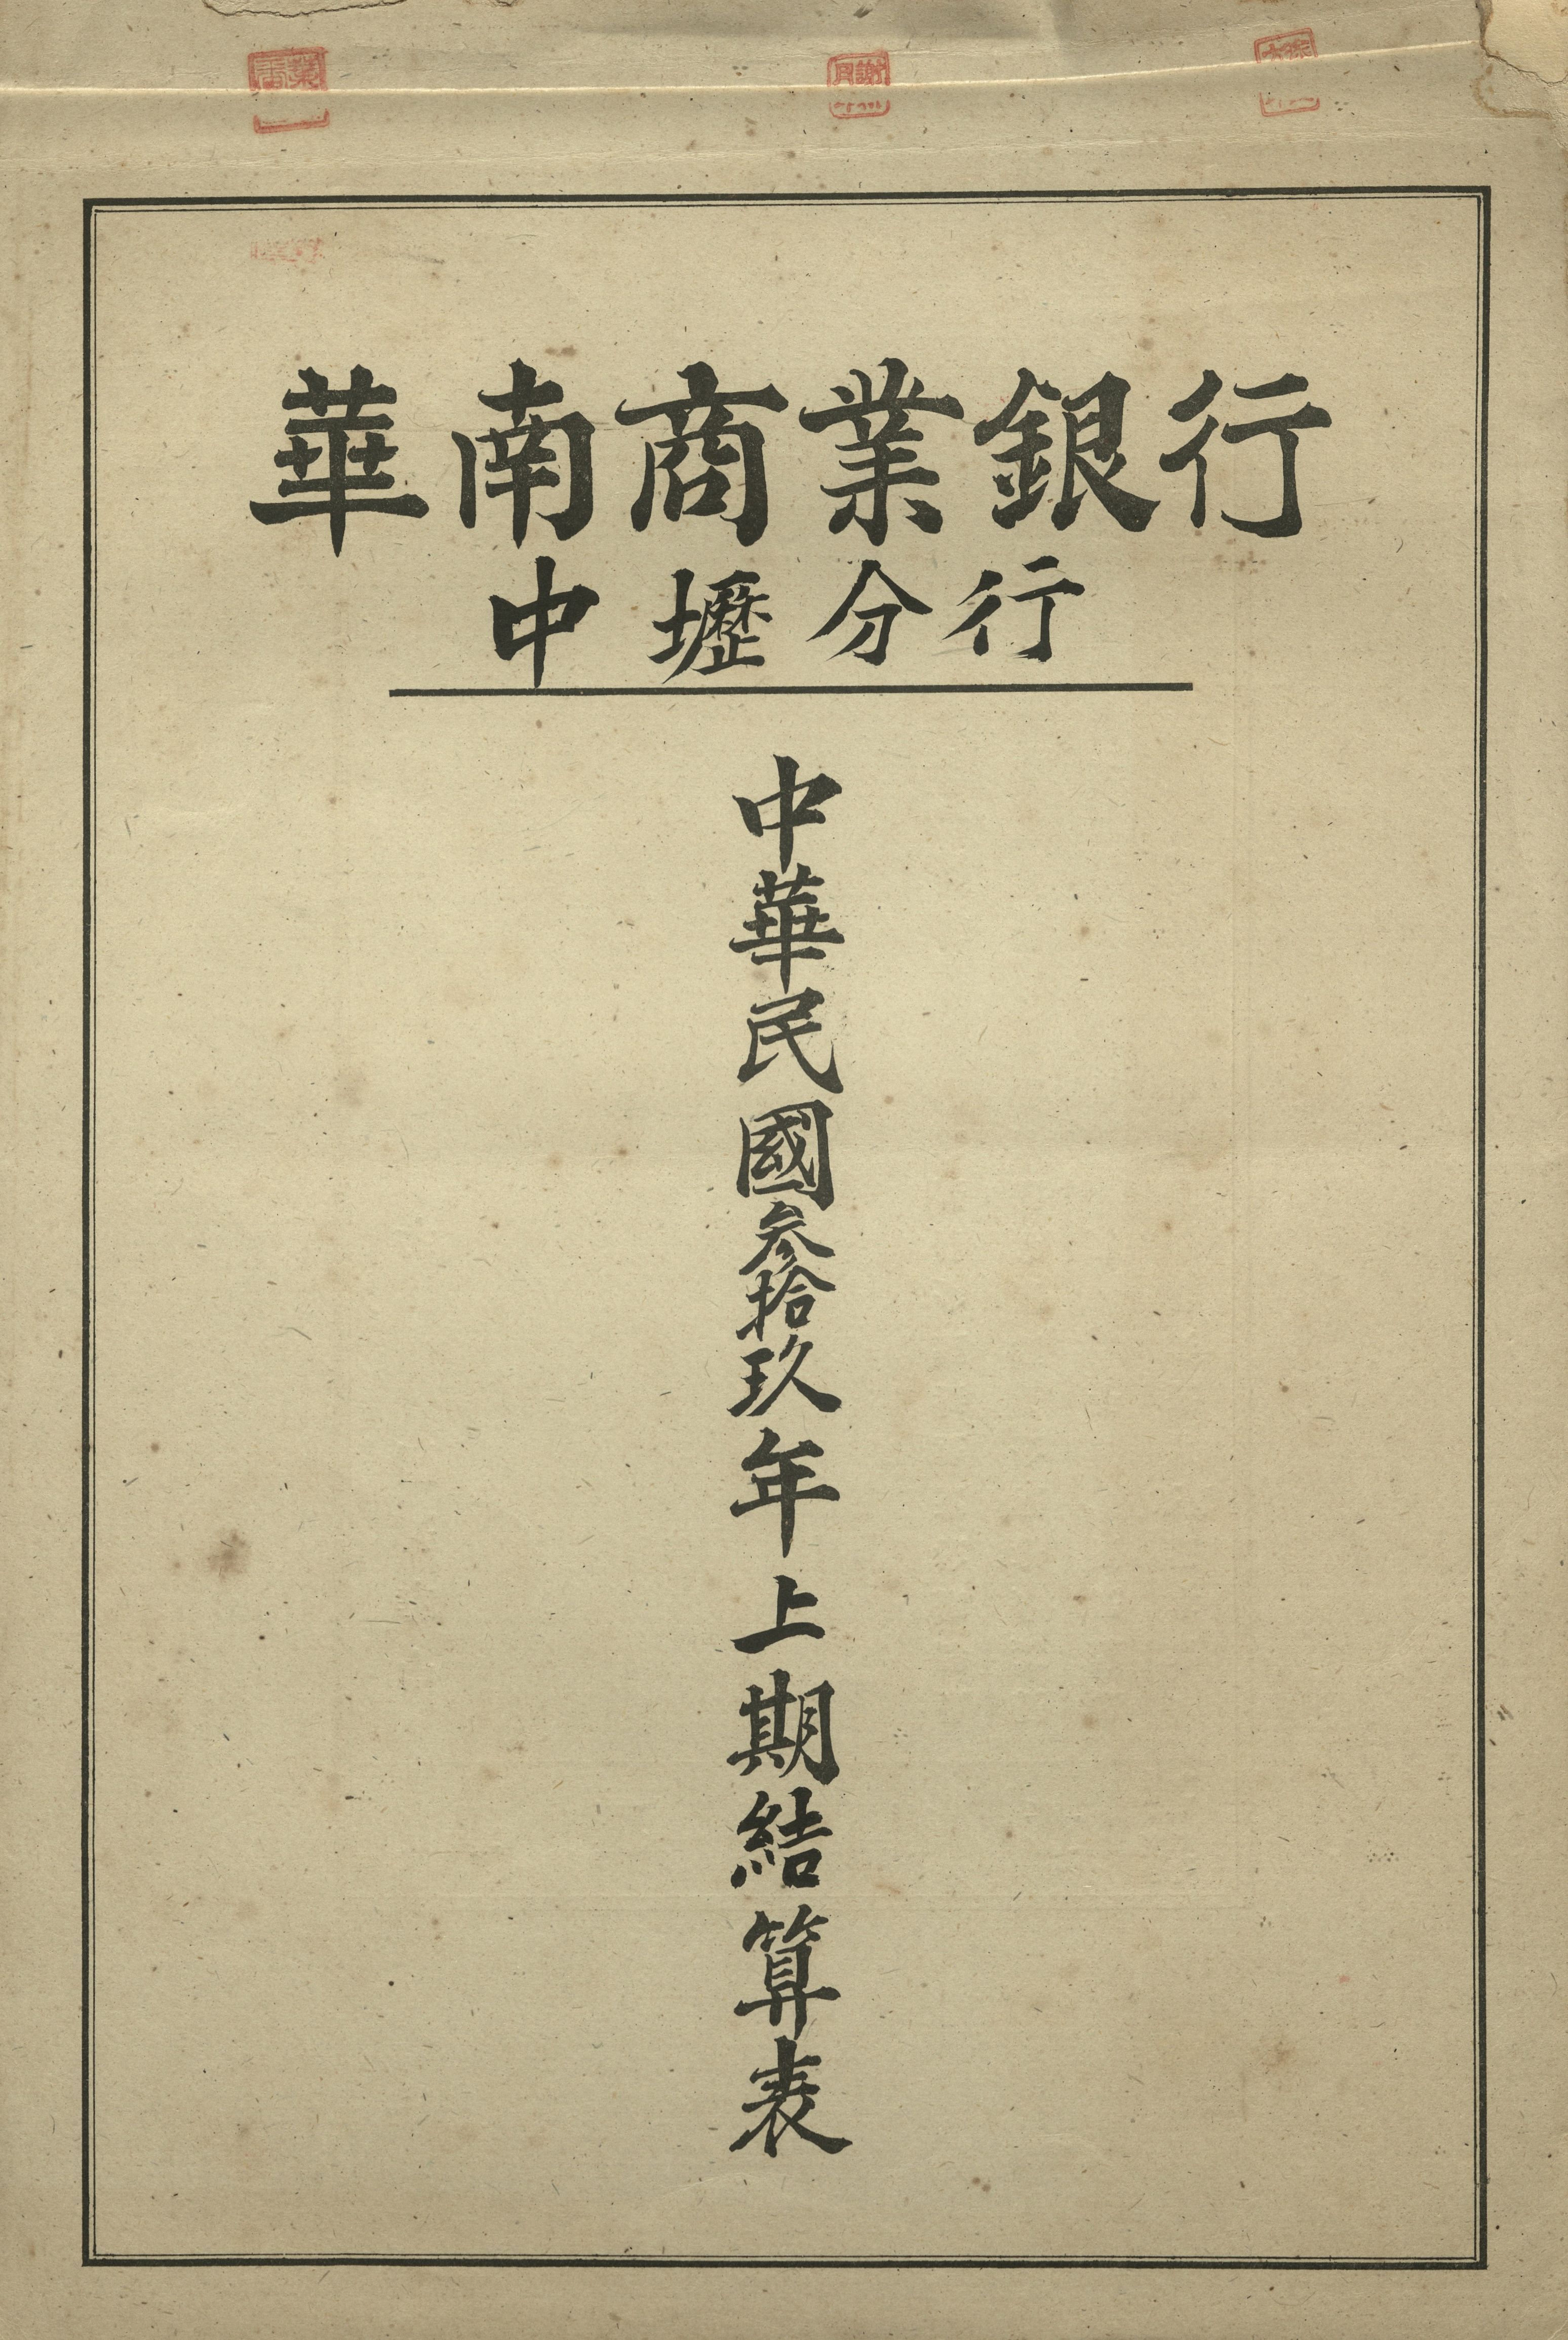 華南商業銀行
中壢分行
中華民國叁拾玖年上期結算表